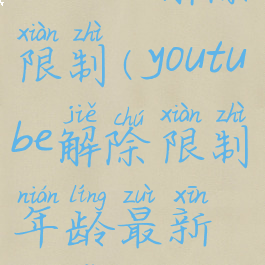 xiàn zhì
限制(youtu
jiě chú xiàn zhì
be解除限制
nián líng zuì xīn
年龄最新